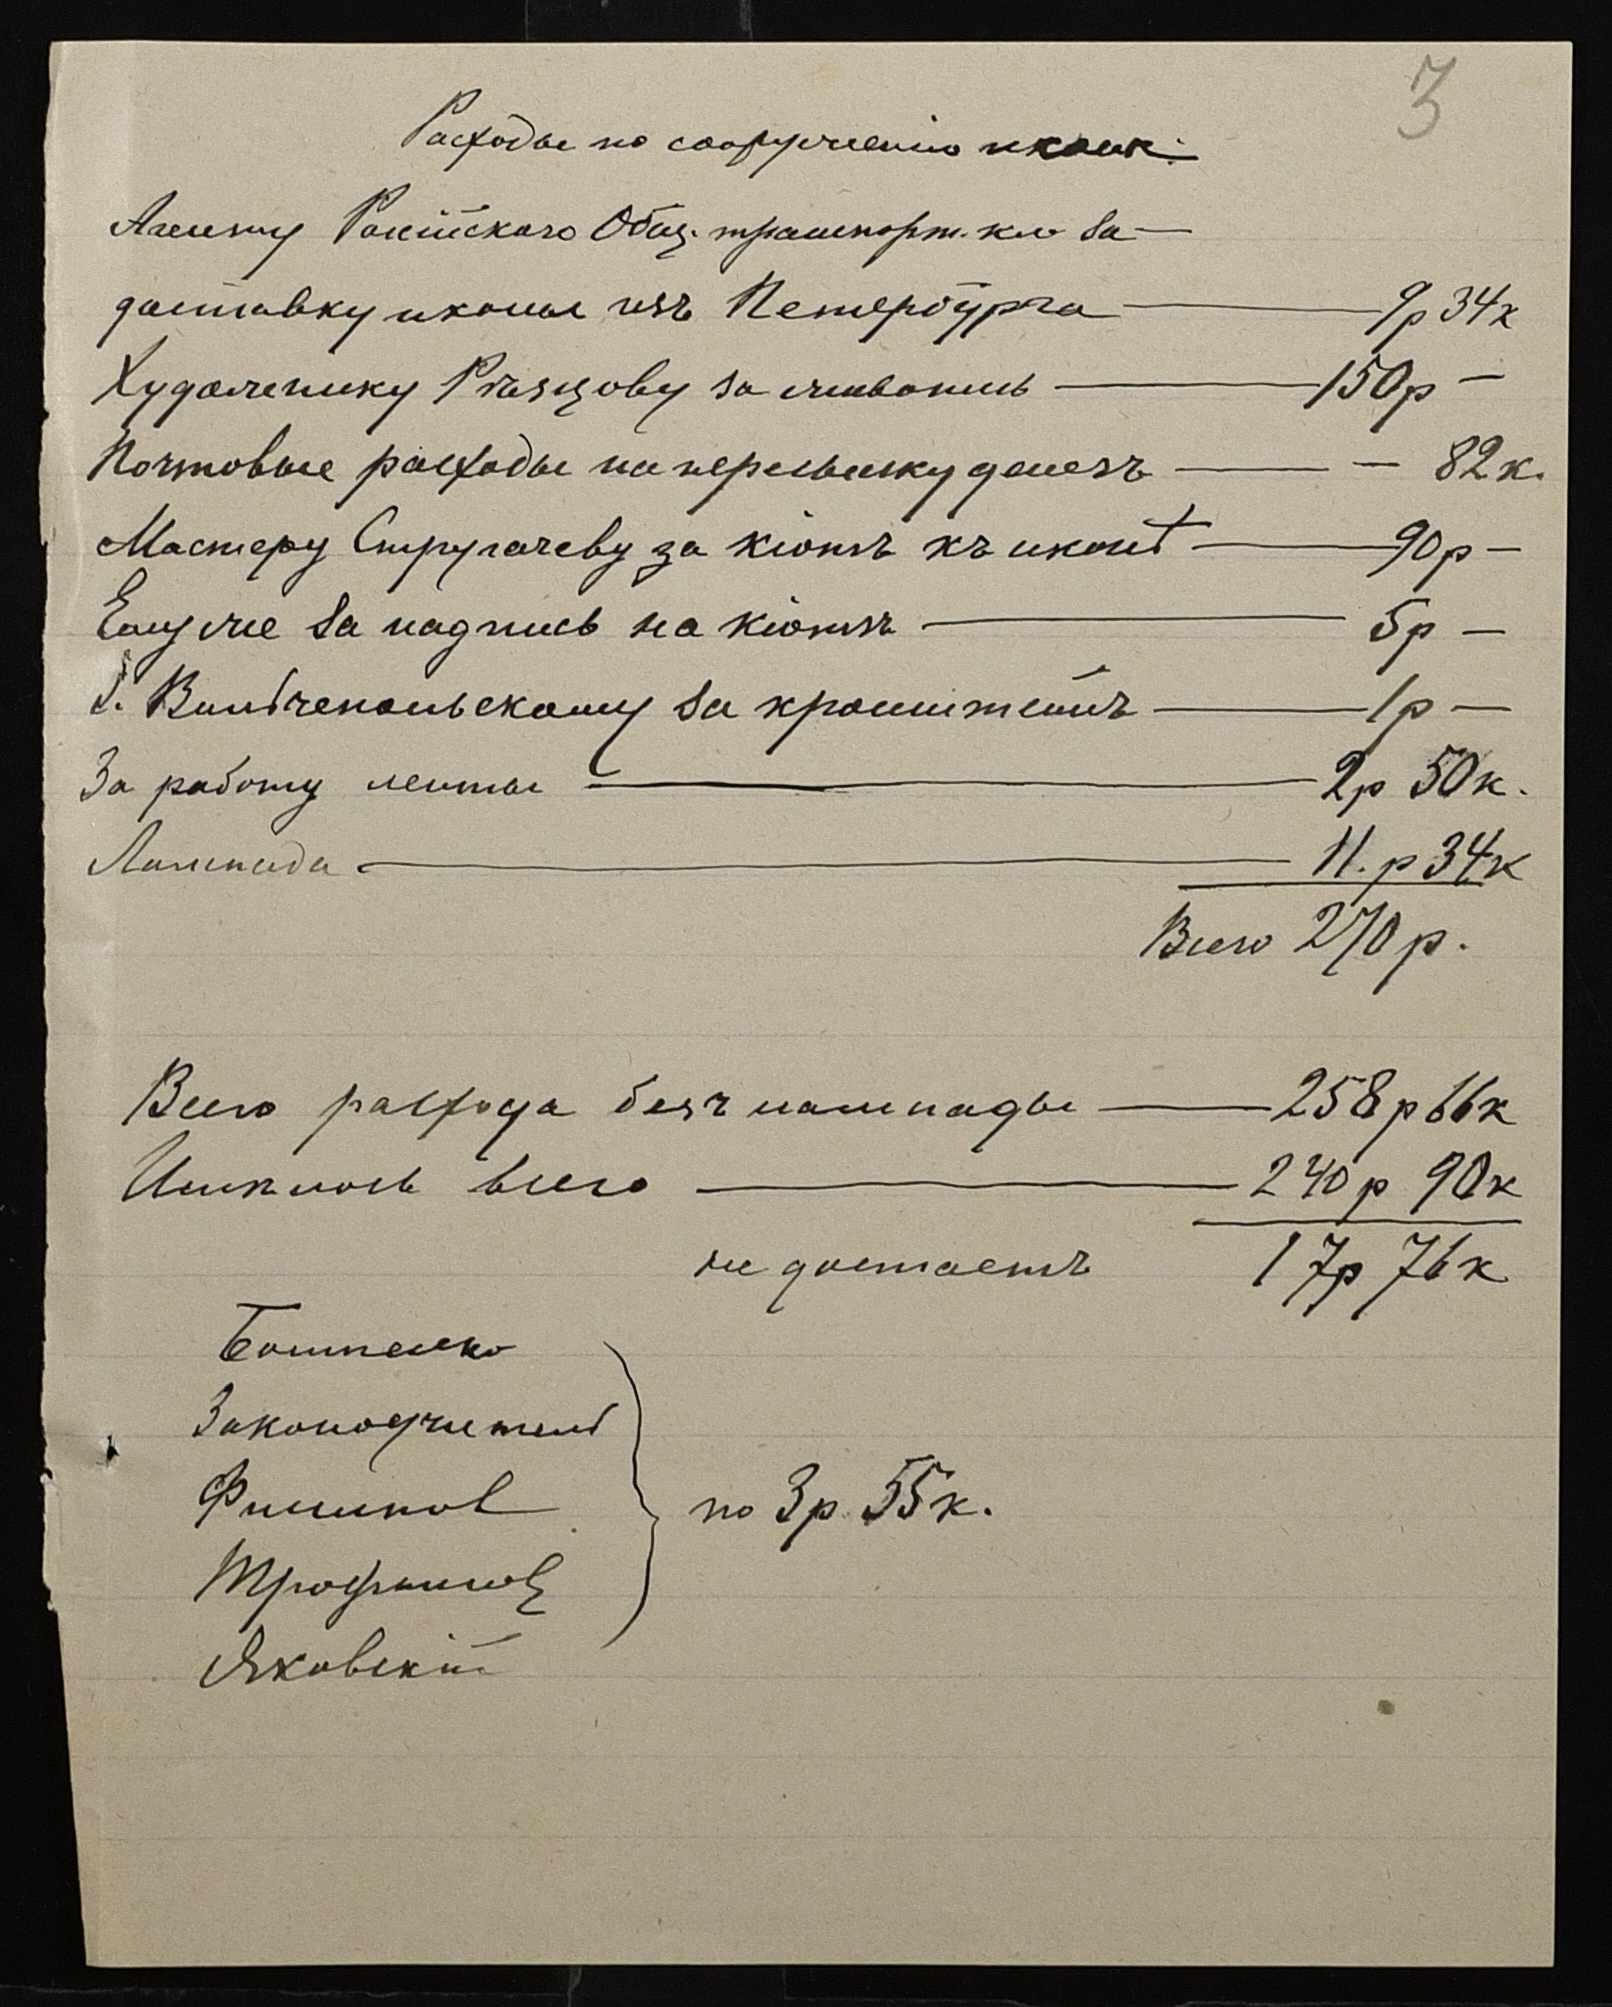 3
Расходы по сооруженію иконы:
Агенту Россійскаго Общ. транспорт. кл. за
доставку иконы изъ Петербурга — 9р 34к
Художнику Рѣзцову за живопись — 150р —
Почтовые расходы на пересылку денегъ — — 82к.
Мастеру Стругачеву за кіотъ къ иконѣ — 90р —
Ему же за надпись на кіотъ — 5р —
За кронштейнъ — 1р —
За работу ленты — 2р 50к.
Лампада — 11.р 34к
Всего 270р.
Всего расхода безъ лампады — 258р 66к
Имѣлось всего — 240р 90к
не достаетъ 17р 76к
Законоучитель
Филипов
Трофимов
Яковскій
по 3р 55к.